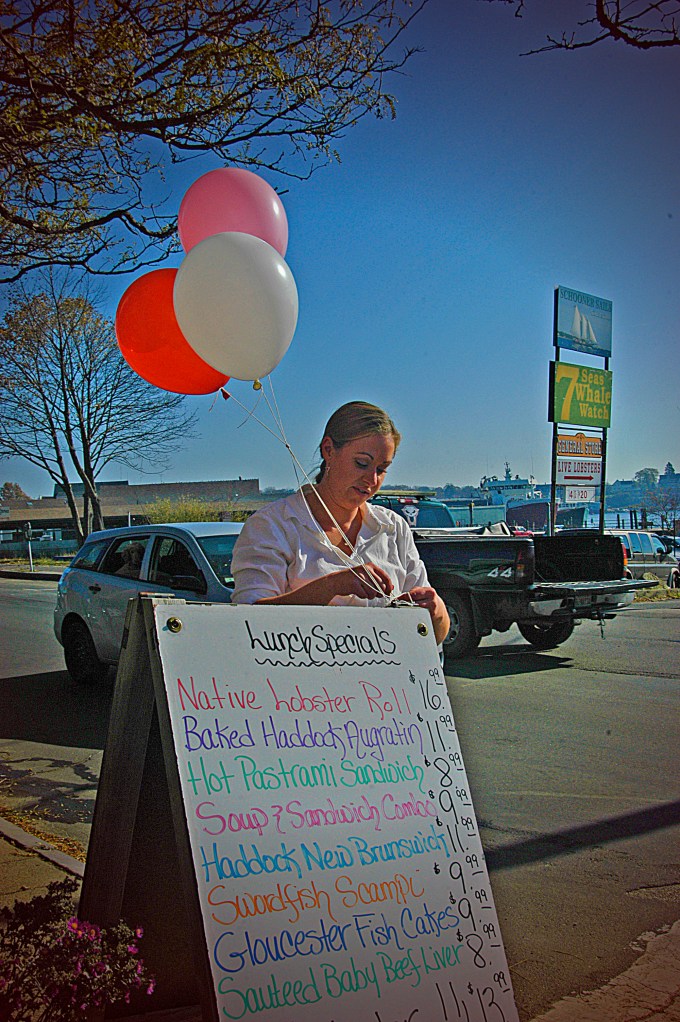 SCHOONER SAILS
7 Seas
Whale
Watch
GENERAL STORE
LIVE LOBSTERS
40720
44
Lunch Specials
Native Lobster Roll $16.99
Baked Haddock Augratin $11.99
Hot Pastrami Sandwich $8.99
Soup & Sandwich Combo $9.99
Haddock New Brunswick $11.99
Swordfish Scampi $9.99
Gloucester Fish Cakes $9.99
Sauteed Baby Beef Liver $8.99
$13.99